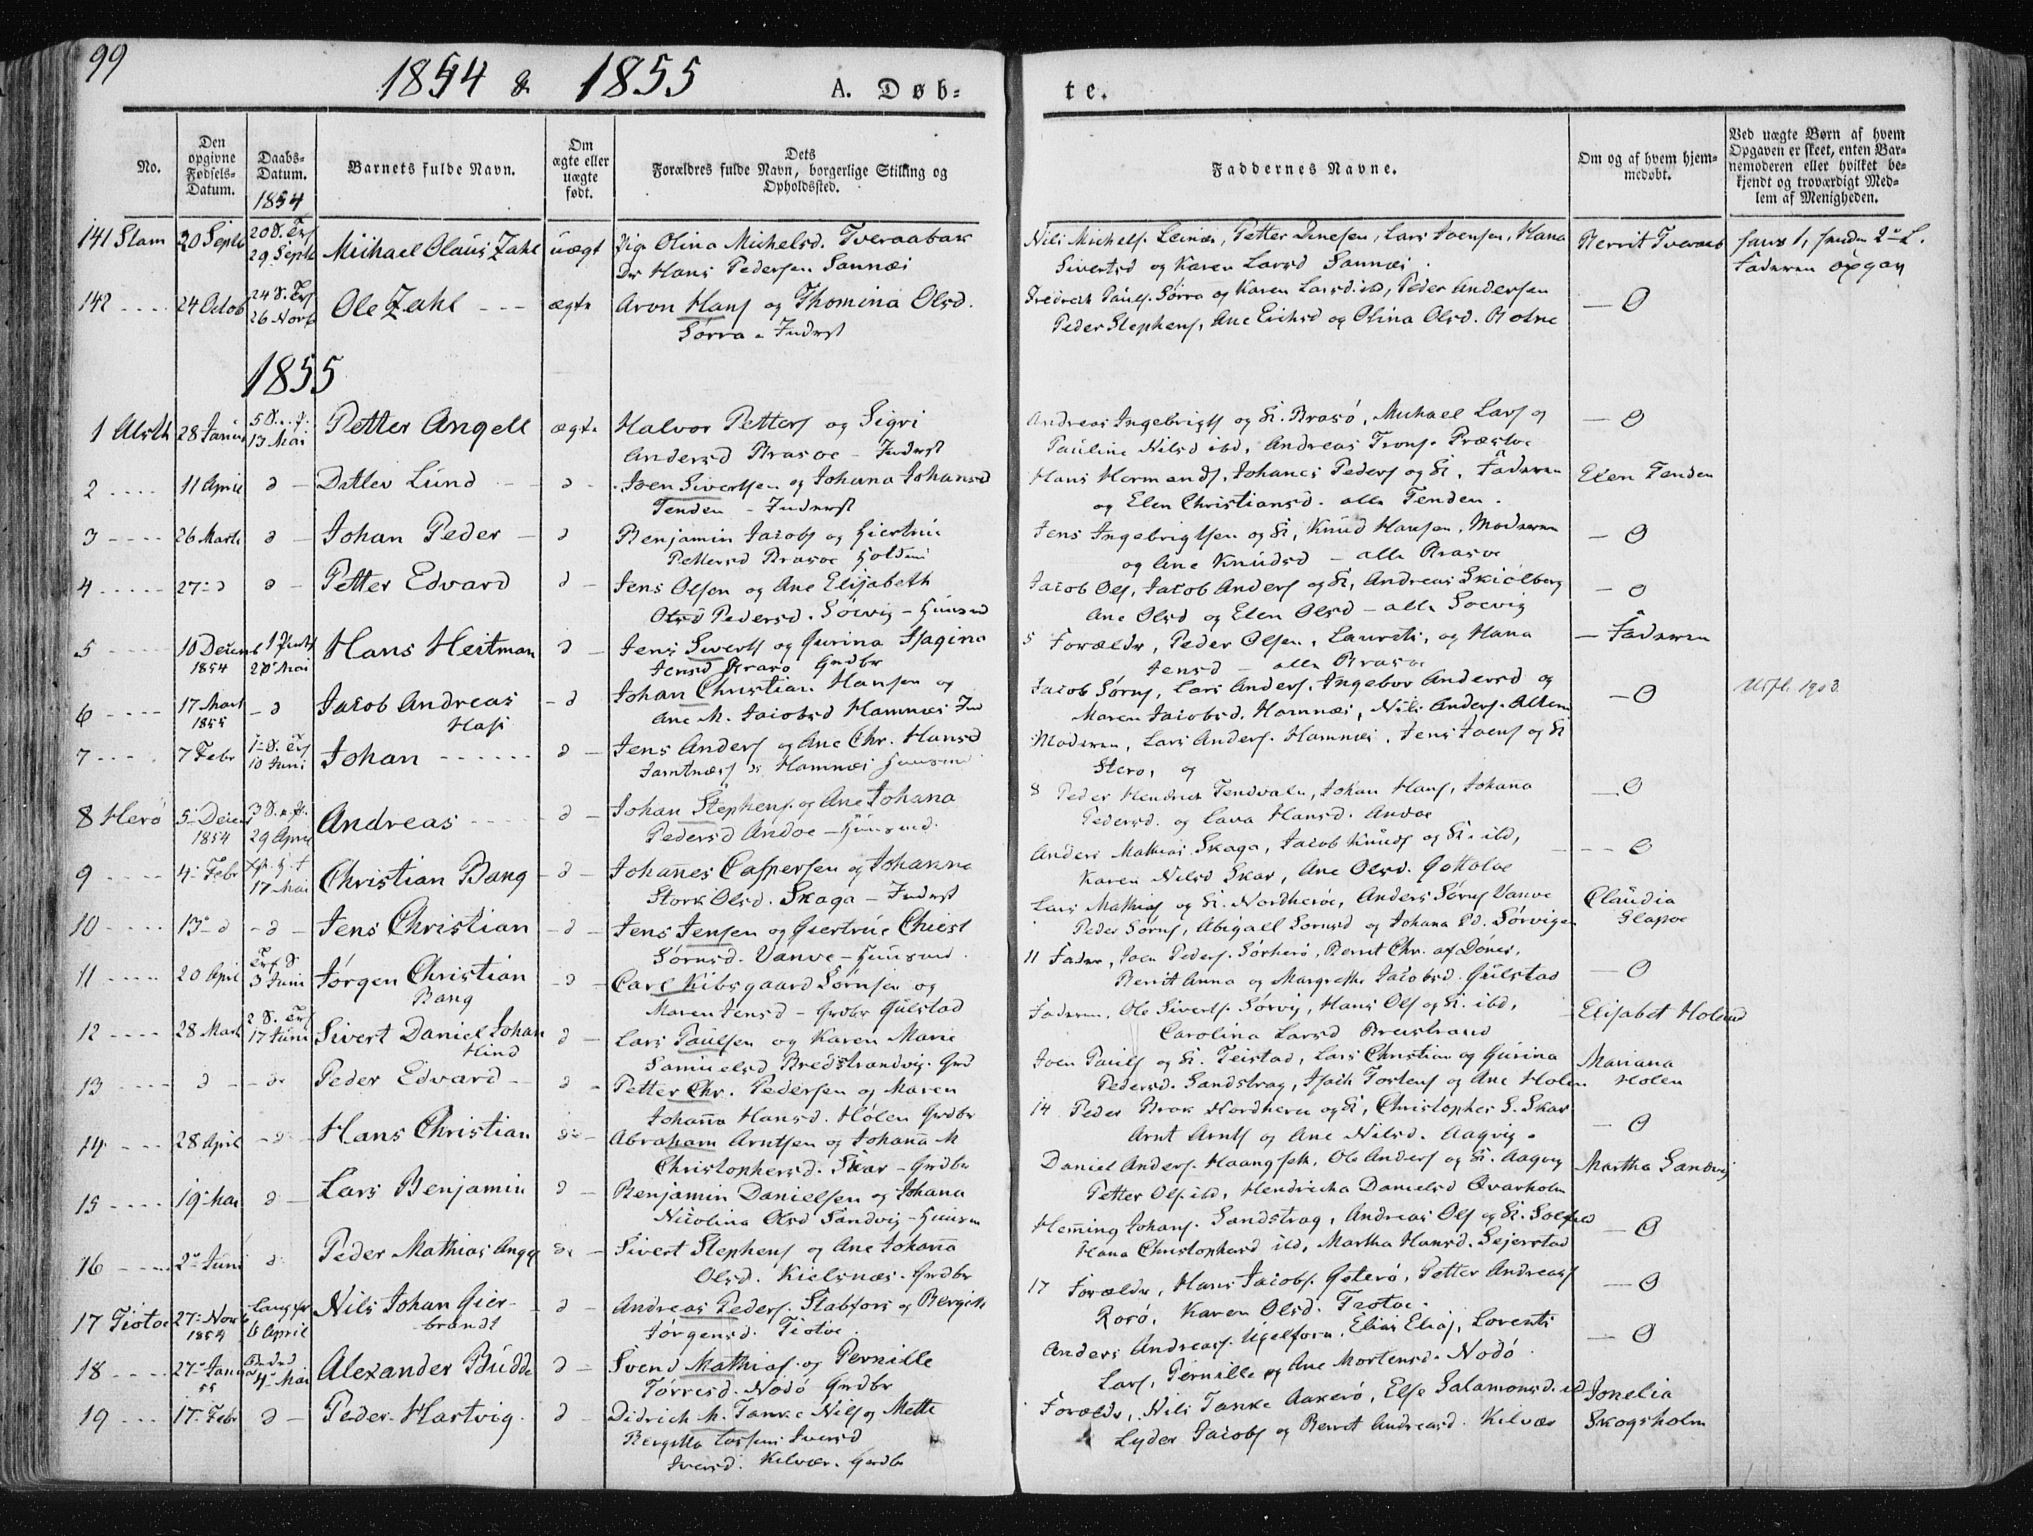 99
1854 & 1855 A. Døb-
te.
No.
Den opgivne Fødsels-Datum.
Daabs-Datum.
1854
Barnets fulde Navn.
Om ægte eller uægte født.
Dets Forældres fulde Navn, borgerlige Stilling og Opholdssted.
Faddernes Navne.
Om og af hvem hjem-medøbt.
Ved uægte Børn af hvem Opgaven er skeet, enten Bar-nemoderen eller hvilket be-kjendt og troværdigt Med-lem af Menigheden.
141 Stam 20 Septb 29 Septb Michael Olaus Zahl uægt Pig. Olina Michelsd. Tveraabak
Hans Pedersen Sannæs
Nils Michels. Leinæs, Petter Danesen, Lars Joensen, Hana
Sivertsd og Karen Larsd Sannæs.
Berrit Tveraab
Faderen opgav
142 24 Octob 26 Novb Ole Zahl ægte Aron Hans og Thomina Olsd.
Sørra - Inderst
Fredrich Pauls. Sørra og Karen Larsd. ibd, Peder Andersen
Peder Stephens, Ane Eriksd og Olina Olsd. Bolne
O
1855
1 Alsth 28 Janu 13 Mai Petter Angell ægte Halvor Petters og Sigri
Andersd Brasøe - Inderst
Andreas Ingebrigts og K. Brasø, Michael Lars og
Pauline Nilsd ibd, Andreas Trons. Præstøe
O
2 11 April d Detlev Lund d Joen Sivertsen og Johana Johansd
Tenden - Inderst
Hans Hermands, Johanes Peders og K, Faderen
og Elen Christiansd. alle Tenden.
Elen Tenden
3 26 Marti d Johan Peder d Benjamin Jacobs og Giertrue
Pettersd Brasøe
Jens Ingebrigtsen og K, Knud Hansen, Moderen
og Ane Knudsd - alle Brasøe
O
4 27 d d Petter Edvard d Jens Olsen og Ane Elisabeth
Pedersd. Søevig - Huusmd
Jacob Ols, Jacob Anders og K, Andreas Skiølberg
Ane Olsd og Elen Olsd - alle Søevig
O
5 10 Decemb 1854 28 Mai Hans Heitman d Jens Siverts og Gurina Hagina
Jensd Brasø Grdbr
5 Forældre, Peder Olsen, Laurets, og Hana
Jensd - alle Brasøe
Faderen
6 17 Mart 1855 d Jacob Andreas
Hass
d Johan Christian Hansen og
Ane M. Jacobsd Hamnæs Ind
Jacob Sørens, Lars Anders, Ingebor Andersd og
Maren Jacobsd. Hamnæs, Nils Anders. Alsten
O
Utfl. 1903.
7 7 Febr 10 Juni Johan d Jens Anders og Ane Chr. Hansd
Hamnæs Huusmd
Moderen, Lars Anders. Hamnæs, Jens Joens og K
Sterø, og
8 Herø 5 Decem 1854 29 April Andreas d Johan Stephens. og Ane Johana
Pedersd Andøe - Huusmd.
8 Peder Hendrich Tendvaln, Johan Hans, Johanna
Pedersd. og Lava Hansd. Andøe
O
9 4 Febr 17 Mai Christian Bang d Johannes Caspersen og Johanna
Stork Olsd. Skaga - Inderst
Anders Mathias Skaga, Jacob Knuds og K. ibd,
Karen Nilsd Skar, Ane Olsd. Gotholøe
O
10 13 d d Jens Christian d Jens Jensen og Giertrue Chiest
Sørnsd. Vanve - Huusmd.
Lars Mathias og K. Nordherøe, Anders Sørns Vanve
Peder Sørns, Abigall Sornsd og Johana Pd. Sørvigen
Claudia
Slapøe
11 20 April 3 Juni Jørgen Christian
Bang
d Carl Kibsgaard Sørnsen og
Maren Jensd - Grdbr Gulstad
11 Fader, Joen Peders. Sørherø, Berrit Chr. af Dønes,
Berrit Anna og Margrethe Jacobsd. Gulstad
O
12 28 Mart 17 Juni Sivert Daniel Johan
Hind
d Lars Paulsen og Karen Marie
Samuelsd Bredstrandvig. Grd
Faderen, Ole Siverts. Sørvig, Hans Ols og K. ibd,
Carolina Larsd Breistrand
Elisabet Holand
13 d d Peder Edvard d Petter Chr. Pedersen og Maren
Johanna Hansd. Holen Grdbr
Joen Pauls og K. Teistad, Lars Christian og Gurina
Pedersd. Sandstrag, Isach Tostens og Ane Holen
Mariana
Holen
14 28 April d Hans Christian d Abraham Arntsen og Johana M
Christophersd. Skar - Grdbr
14 Peder Brok Nordherø og K, Christopher S. Skar
Arnt Arnts og Ane Nilsd. Aagvig.
O
15 19 Mai d Lars Benjamin d Benjamin Danielsen og Johana
Nicolina Olsd Sandvig - Huusm
Daniel Anders. Haangseth, Ole Anders og K. Aagvig
Petter Ols. ibd, Hendricka Danielsd Qvarholm
Martha Sandvig
16 2 Juni d Peder Mathias Angl d Sivert Stephens og Ane Johanna
Olsd. Kielsnæs - Grdbr
Hemming Johans. Sandstrag, Andreas Ols og K. Solfied
Hana Christophersd ibd, Martha Hansd. Sejerstad
O
17 Tiøtøe 27 Novb 1854 6 April Nils Johan Gier-
brandt
d Andreas Peders. Stabfors og Bergith
Jørgensd. Tiøtøe.
17 Forældre, Hans Jacobs. Geterø, Petter Andreas
Rorø, Karen Olsd. Tiøtøe.
O
18 27 Janu 55 4 Mai Alexander Budde d Svend Mathias. og Pernille
Torresd. Nodø Grdbr
Anders Andreas. Ugelforn, Elias Elias, Lorents
Lars, Pernille og Ane Mortensd. Nodø.
O
19 17 Febr d Peder Hartvig. d Didrich M. Tanke Nils og Mette
Bergitta Iversd
Iversd. Kilvær. Grdbr
Forældre, Nils Tanke Aakerø, Else Salamonsd. ibd
Lyder Jacobs og Berret Andreasd. Kilvær
Jonelia
Skogsholm